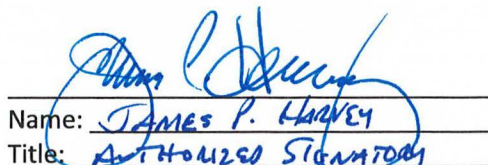 Name: JAMES P. HARVEY
Title: AUTHORIZED SIGNATORY